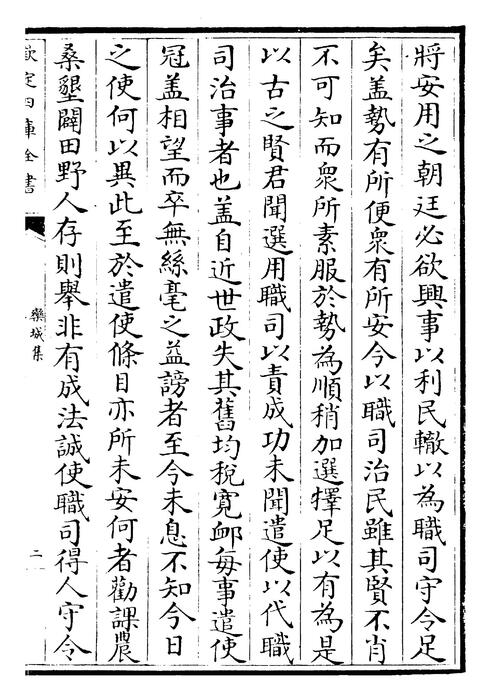 將安用之朝廷必欲興事以利民轍以為職司守令足
矣盖勢有所便衆有所安今以職司治民雖其賢不肖
不可知而衆所素服於勢為順稍加選擇足以有為是
以古之賢君聞選用職司以責成功未聞遣使以代職
司治事者也盖自近世政失其舊均稅寛䘏每事遣使
冠盖相望而卒無絲毫之益謗者至今未息不知今日
之使何以異此至於遣使條目亦所未安何者勸課農
桑墾闢田野人存則舉非有成法誠使職司得人守令
欽定四庫全書
欒城集
二